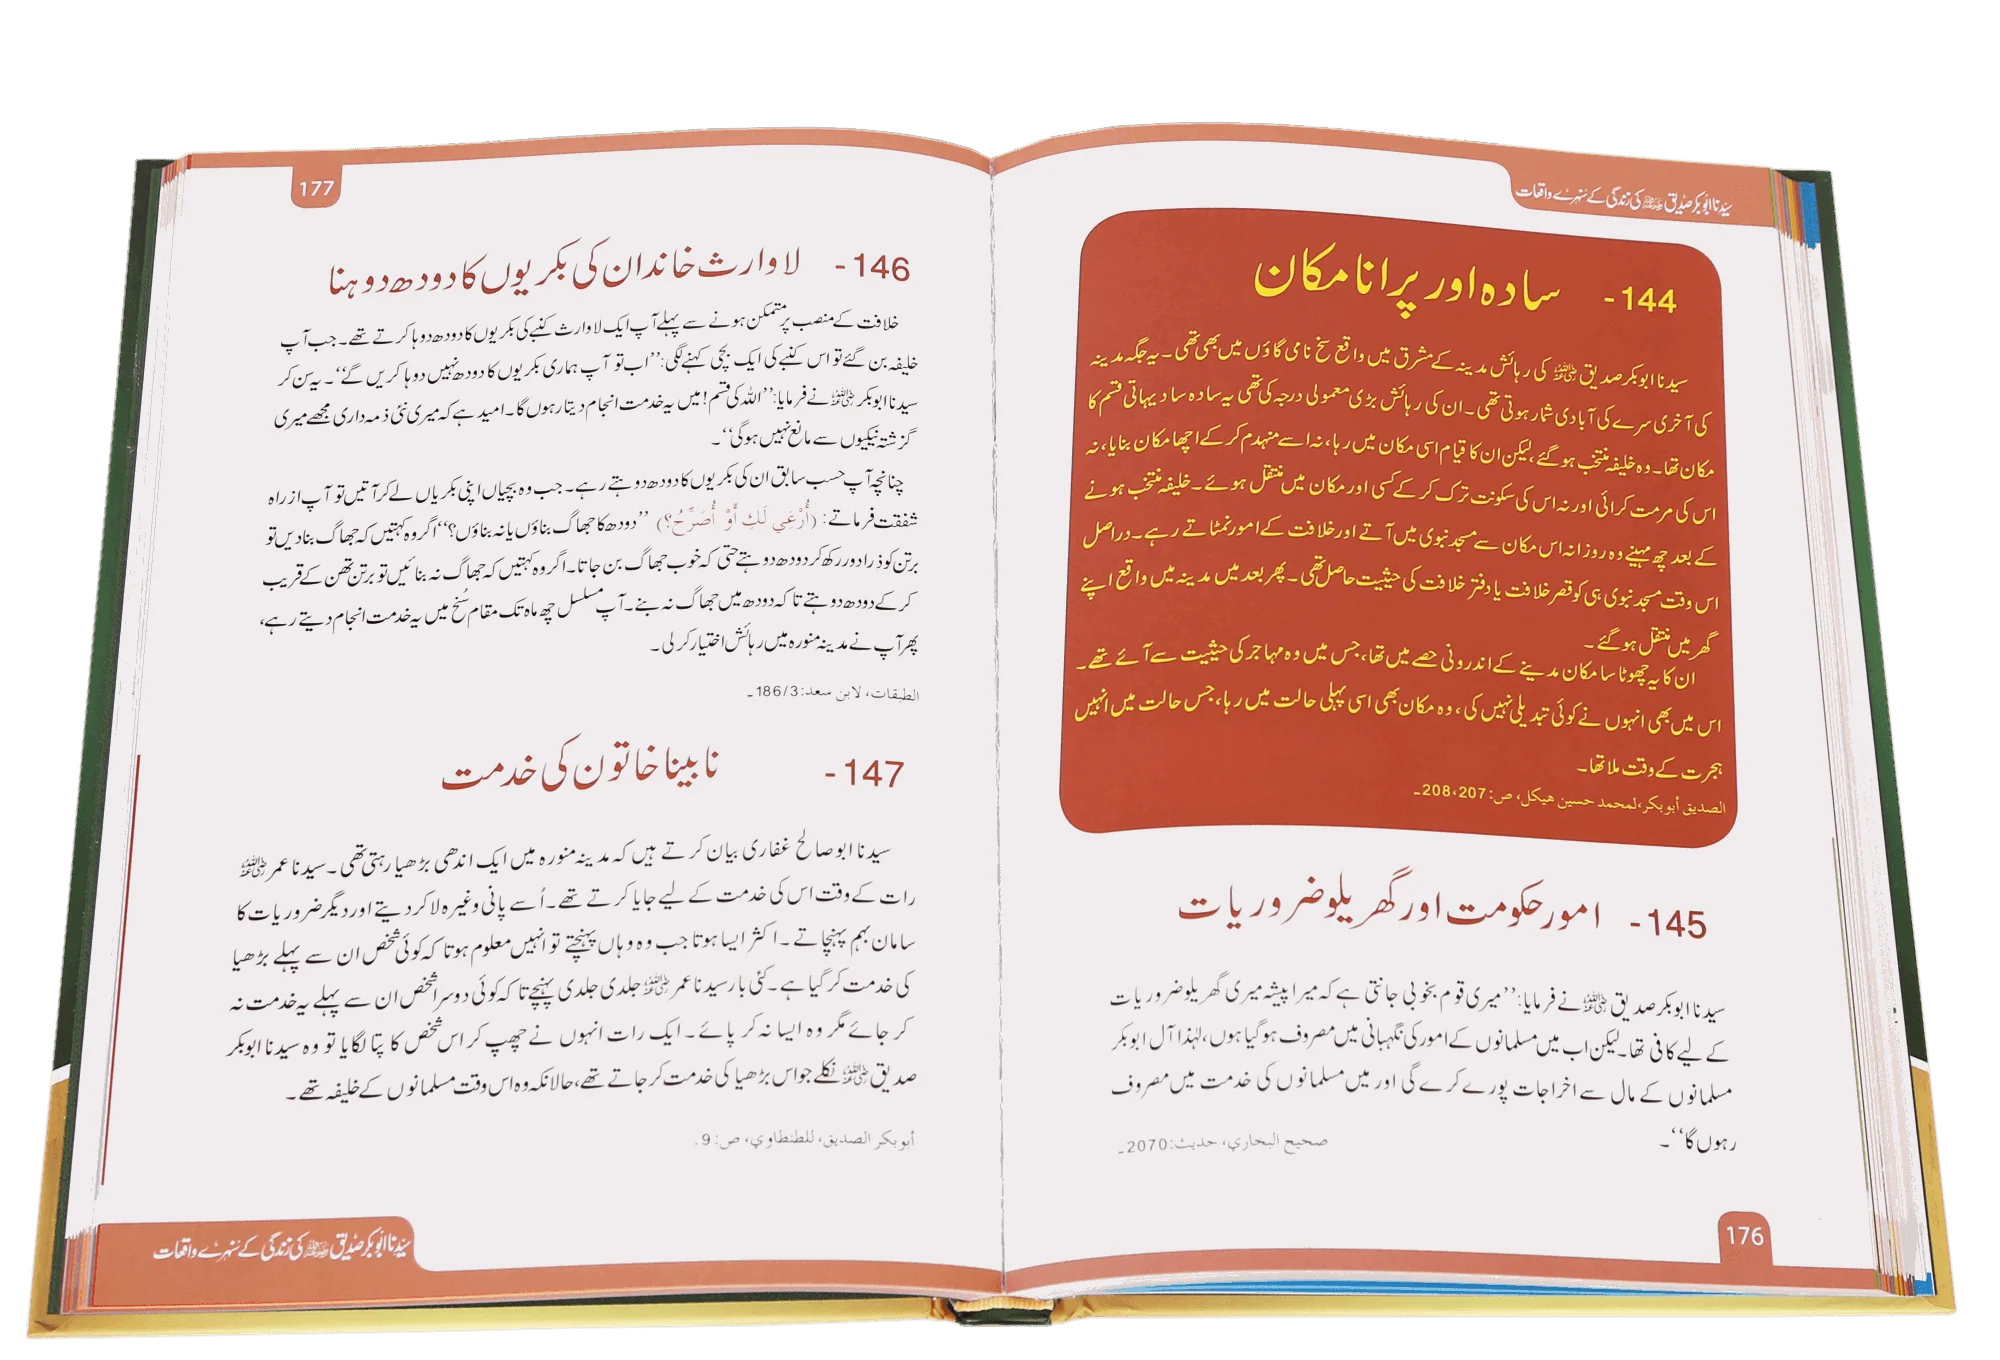 سیدنا ابوبکر صدیق رضی اللہ عنہ کی زندگی کے سنہرے واقعات
144- سادہ اور پرانا مکان
سیدنا ابوبکر صدیق رضی اللہ عنہ کی رہائش مدینہ کے مشرق میں واقع سنح نامی گاؤں میں بھی تھی۔ یہ جگہ مدینہ
کی آخری سرے کی آبادی شمار ہوتی تھی۔ ان کی رہائش بڑی معمولی درجہ کی تھی یہ سادہ سا دیہاتی قسم کا
مکان تھا۔ وہ خلیفہ منتخب ہو گئے، لیکن ان کا قیام اسی مکان میں رہا، نہ اسے منہدم کر کے اچھا مکان بنایا، نہ
اس کی مرمت کرائی اور نہ اس کی سکونت ترک کر کے کسی اور مکان میں منتقل ہوئے۔ خلیفہ منتخب ہونے
کے بعد چھ مہینے وہ روزانہ اس مکان سے مسجد نبوی میں آتے اور خلافت کے امور نمٹاتے رہے۔ دراصل
اس وقت مسجد نبوی ہی کو قصر خلافت یا دفتر خلافت کی حیثیت حاصل تھی۔ پھر بعد میں مدینہ میں واقع اپنے
گھر میں منتقل ہو گئے۔
ان کا یہ چھوٹا سا مکان مدینے کے اندرونی حصے میں تھا، جس میں وہ مہاجر کی حیثیت سے آئے تھے۔
اس میں بھی انہوں نے کوئی تبدیلی نہیں کی، وہ مکان بھی اسی پہلی حالت میں رہا، جس حالت میں انہیں
ہجرت کے وقت ملا تھا۔
الصديق أبوبكر، لمحمد حسين هيكل، ص: 207، 208۔
145- امور حکومت اور گھریلو ضروریات
سیدنا ابوبکر صدیق رضی اللہ عنہ نے فرمایا: ’’میری قوم بخوبی جانتی ہے کہ میرا پیشہ میری گھریلو ضروریات
کے لیے کافی تھا۔ لیکن اب میں مسلمانوں کے امور کی نگہبانی میں مصروف ہو گیا ہوں، لہٰذا آل ابوبکر
مسلمانوں کے مال سے اخراجات پورے کرے گی اور میں مسلمانوں کی خدمت میں مصروف
رہوں گا‘‘۔
صحيح البخاري، حديث: 2070۔
176
177
146- لاوارث خاندان کی بکریوں کا دودھ دوہنا
خلافت کے منصب پر متمکن ہونے سے پہلے آپ ایک لاوارث کنبے کی بکریوں کا دودھ دوہا کرتے تھے۔ جب آپ
خلیفہ بن گئے تو اس کنبے کی ایک بچی کہنے لگی: ’’اب تو آپ ہماری بکریوں کا دودھ نہیں دوہا کریں گے‘‘۔ یہ سن کر
سیدنا ابوبکر رضی اللہ عنہ نے فرمایا: ’’اللہ کی قسم! میں یہ خدمت انجام دیتا رہوں گا۔ امید ہے کہ میری نئی ذمہ داری مجھے میری
گزشتہ نیکیوں سے مانع نہیں ہو گی‘‘۔
چنانچہ آپ حسب سابق ان کی بکریوں کا دودھ دوہتے رہے۔ جب وہ بچیاں اپنی بکریاں لے کر آتیں تو آپ از راہ
شفقت فرماتے: (أُرْغِي لَكِ أَوْ أُصَرِّحُ؟) ’’دودھ کا جھاگ بناؤں یا نہ بناؤں؟‘‘ اگر وہ کہتیں کہ جھاگ بنا دیں تو
برتن کو ذرا دور رکھ کر دودھ دوہتے حتی کہ خوب جھاگ بن جاتا۔ اگر وہ کہتیں کہ جھاگ نہ بنائیں تو برتن تھن کے قریب
کر کے دودھ دوہتے تاکہ دودھ میں جھاگ نہ بنے۔ آپ مسلسل چھ ماہ تک مقام سُنح میں یہ خدمت انجام دیتے رہے،
پھر آپ نے مدینہ منورہ میں رہائش اختیار کر لی۔
الطبقات، لابن سعد: 186/3۔
147- نابینا خاتون کی خدمت
سیدنا ابو صالح غفاری بیان کرتے ہیں کہ مدینہ منورہ میں ایک اندھی بڑھیا رہتی تھی۔ سیدنا عمر رضی اللہ عنہ
رات کے وقت اس کی خدمت کے لیے جایا کرتے تھے۔ اُسے پانی وغیرہ لا کر دیتے اور دیگر ضروریات کا
سامان بہم پہنچاتے۔ اکثر ایسا ہوتا جب وہ وہاں پہنچتے تو انہیں معلوم ہوتا کہ کوئی شخص ان سے پہلے بڑھیا
کی خدمت کر گیا ہے۔ کئی بار سیدنا عمر رضی اللہ عنہ جلدی جلدی پہنچے تاکہ کوئی دوسرا شخص ان سے پہلے یہ خدمت نہ
کر جائے مگر وہ ایسا نہ کر پائے۔ ایک رات انہوں نے چھپ کر اس شخص کا پتا لگایا تو وہ سیدنا ابوبکر
صدیق رضی اللہ عنہ نکلے جو اس بڑھیا کی خدمت کر جاتے تھے، حالانکہ وہ اس وقت مسلمانوں کے خلیفہ تھے۔
أبوبكر الصديق، للطنطاوي، ص: 9۔
سیدنا ابوبکر صدیق رضی اللہ عنہ کی زندگی کے سنہرے واقعات